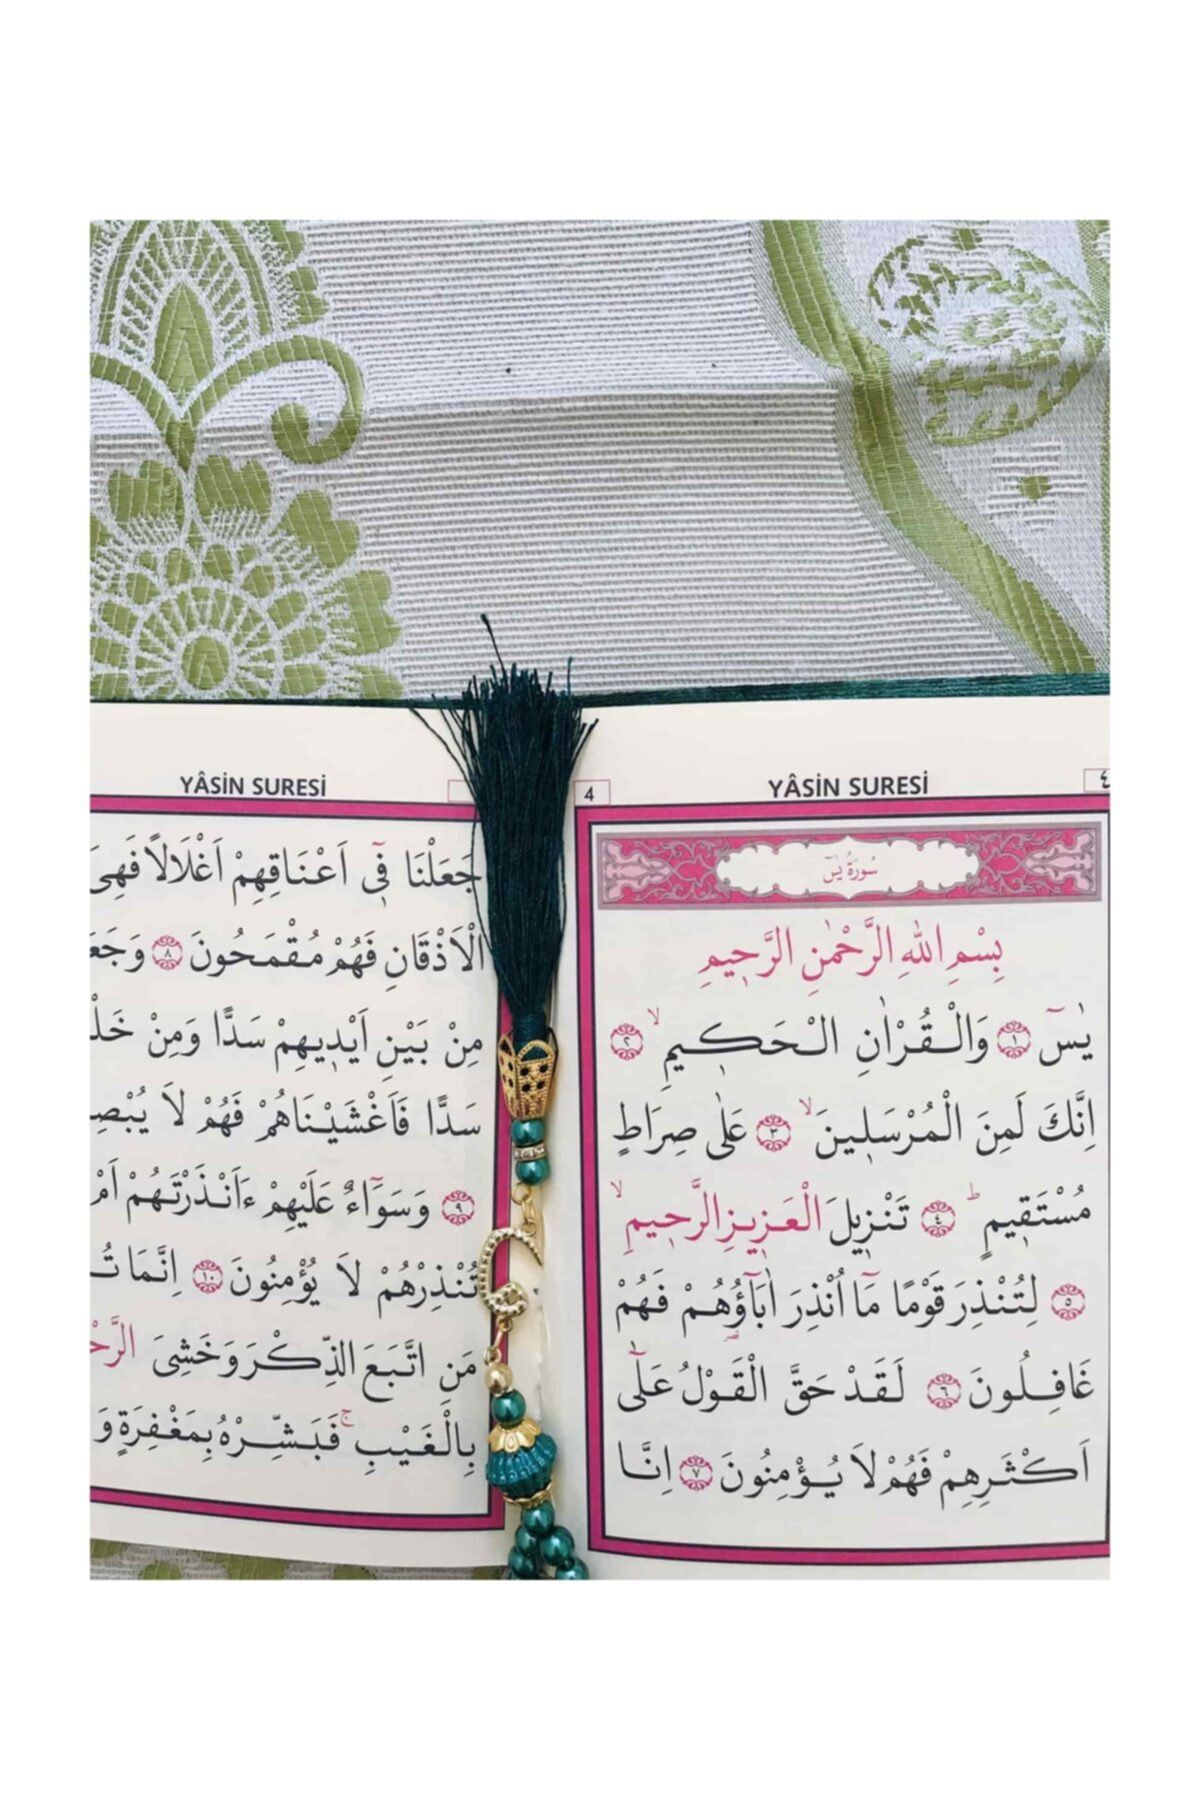 YÂSİN SURESİ
٤
4
سُورَةُ يٰسٓ
بِسْمِ اللّٰهِ الرَّحْمٰنِ الرَّح۪يمِ
يٰسٓ ﴿١﴾ وَالْقُرْاٰنِ الْحَك۪يمِۙ ﴿٢﴾
اِنَّكَ لَمِنَ الْمُرْسَل۪ينَۙ ﴿٣﴾ عَلٰى صِرَاطٍ
مُسْتَق۪يمٍۜ ﴿٤﴾ تَنْز۪يلَ الْعَز۪يزِ الرَّح۪يمِۙ
﴿٥﴾ لِتُنْذِرَ قَوْمًا مَٓا اُنْذِرَ اٰبَٓاؤُ۬هُمْ فَهُمْ
غَافِلُونَ ﴿٦﴾ لَقَدْ حَقَّ الْقَوْلُ عَلٰٓى
اَكْثَرِهِمْ فَهُمْ لَا يُؤْمِنُونَ ﴿٧﴾ اِنَّا
YÂSİN SURESİ
جَعَلْنَا ف۪ٓي اَعْنَاقِهِمْ اَغْلَالًا فَهِيَ
الْاَذْقَانِ فَهُمْ مُقْمَحُونَ ﴿٨﴾
مِنْ بَيْنِ اَيْد۪يهِمْ سَدًّا وَمِنْ
سَدًّا فَاَغْشَيْنَاهُمْ فَهُمْ لَا
﴿٩﴾ وَسَوَٓاءٌ عَلَيْهِمْ ءَاَنْذَرْتَهُمْ اَمْ
تُنْذِرْهُمْ لَا يُؤْمِنُونَ ﴿١٠﴾ اِنَّمَا
مَنِ اتَّبَعَ الذِّكْرَ وَخَشِيَ
بِالْغَيْبِۚ فَبَشِّرْهُ بِمَغْفِرَةٍ وَ